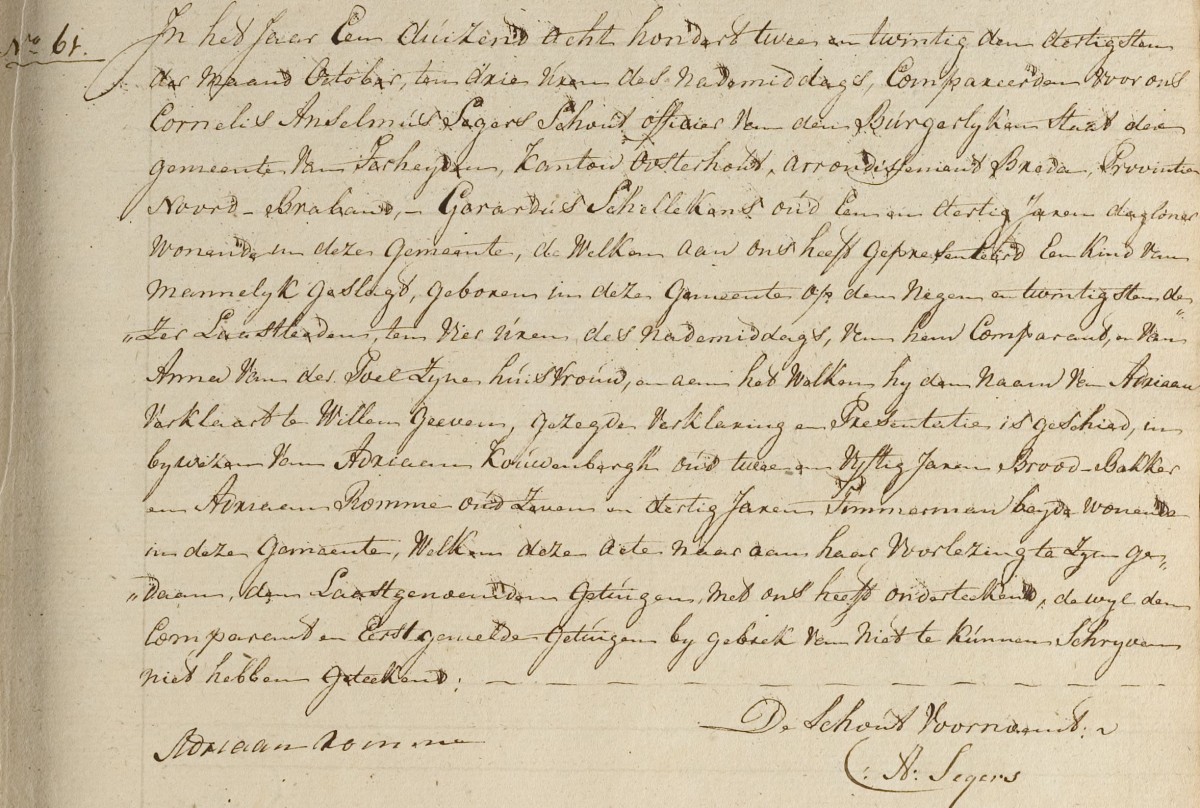 No. 61.
In het Jaar Een duizend acht hondert twee en twintig den dertigsten
der maand October, ten drie uren des nademiddags, Compareerden voor ons
Cornelis Anselmus Segers Schout officier van den Burgerlyken staat der
gemeente van Terheyden, Kanton Oosterhout, arrondissement Breda, Provintie
Noord-Braband, - Gerardus Schellekens oud Een en dertig Jaren dagloner
wonende in deze gemeente, de welken aan ons heeft gepresenteerd Een Kind van
mannelyk geslagt, geboren in deze gemeente op den negen en twintigsten de"
"zer Laastleeden, ten vier uren des nademiddags, van hem Comparant, en van
Anna van der Poel zyne huisvrouw, en aen het welken hy den naam van Adriaan
verklaart te willen geeven, gezegde verklaring en Presentatie is geschied, in
bywezen van Adriaan Kouwenbergh oud twee en vyftig Jaren Brood-Bakker
en Adriaen Romme oud Zeven en dertig Jaren Timmerman beyde wonende
in deze gemeente, welken deze acte naar aan haar voorlezing te zyn ge"
"daan, den Laastgenoemden getuigen, met ons heeft onderteekend, dewyl den
Comparant en Eerst gemelde getuigen by gebrek van niet te kunnen Schryven
niet hebben geteekend:
De Schout voornoemt:
Adriaan romme
C: A: Segers